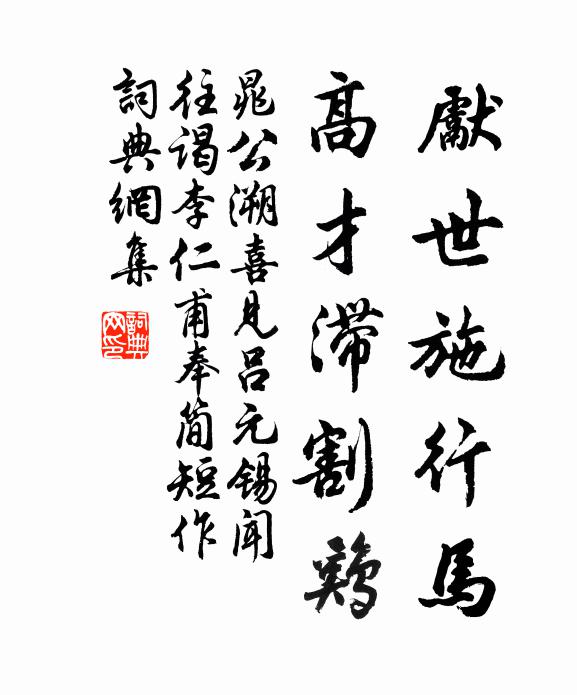 獻世施行馬
高才滯割鷄
晁公溯喜見呂元锡聞
往谒李仁甫奉简短作
詞典網集
詞典
网印